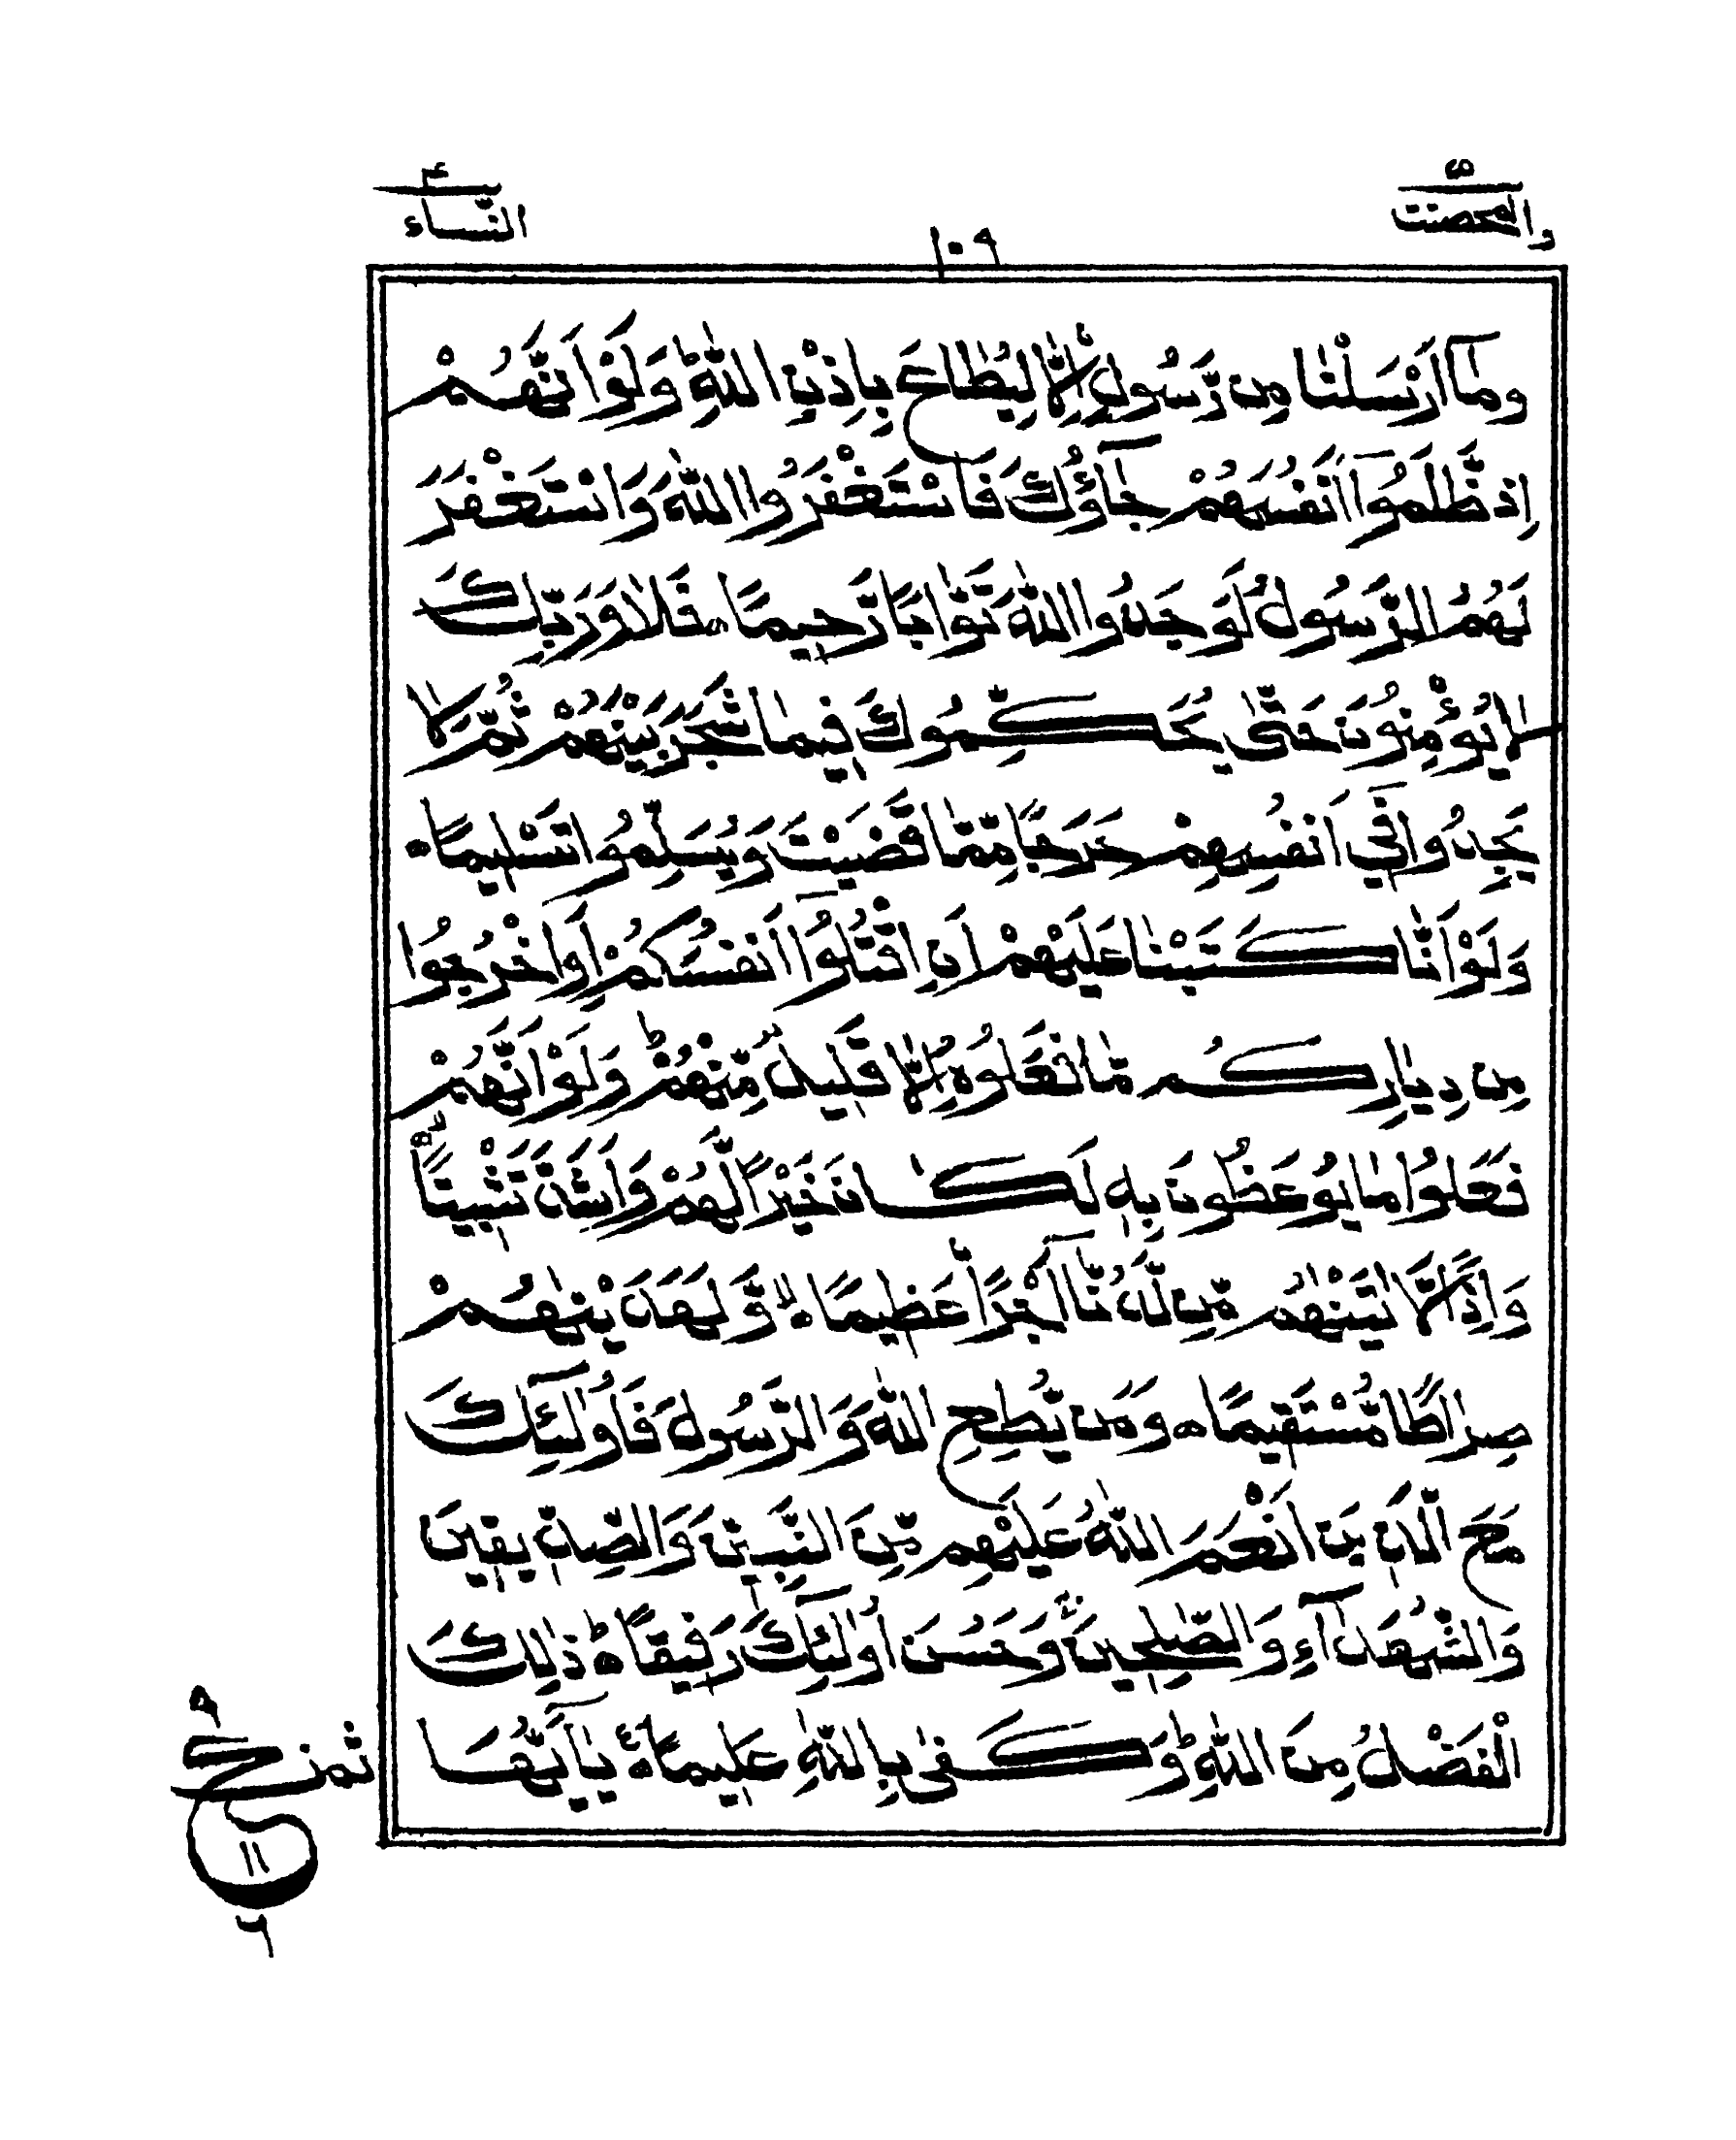 ٥
والمحصنت
٤
النساء
١٠٩
وَمَآ اَرْسَلْنَا مِن رَّسُولٍ اِلَّا لِيُطَاعَ بِاِذْنِ اللّٰهِ ؕ وَلَوْ اَنَّهُمْ
اِذ ظَّلَمُوٓا اَنفُسَهُمْ جَآؤُكَ فَاسْتَغْفَرُوا اللّٰهَ وَاسْتَغْفَرَ
لَهُمُ الرَّسُولُ لَوَجَدُوا اللّٰهَ تَوَّابًا رَّحِيمًا ۝ فَلَا وَرَبِّكَ
لَا يُؤْمِنُونَ حَتّٰى يُحَكِّمُوكَ فِيمَا شَجَرَ بَيْنَهُمْ ثُمَّ لَا
يَجِدُوا فِيٓ اَنفُسِهِمْ حَرَجًا مِّمَّا قَضَيْتَ وَيُسَلِّمُوا تَسْلِيمًا ۝
وَلَوْ اَنَّا كَتَبْنَا عَلَيْهِمْ اَنِ اقْتُلُوٓا اَنفُسَكُمْ اَوِ اخْرُجُوا
مِن دِيَارِكُم مَّا فَعَلُوهُ اِلَّا قَلِيلٌ مِّنْهُمْ ؕ وَلَوْ اَنَّهُمْ
فَعَلُوا مَا يُوعَظُونَ بِهٖ لَكَانَ خَيْرًا لَّهُمْ وَاَشَدَّ تَثْبِيتًا ۝ۙ
وَاِذًا لَّاٰتَيْنٰهُم مِّن لَّدُنَّآ اَجْرًا عَظِيمًا ۝ۙ وَّلَهَدَيْنٰهُمْ
صِرَاطًا مُّسْتَقِيمًا ۝ وَمَن يُّطِعِ اللّٰهَ وَالرَّسُولَ فَاُولٰٓئِكَ
مَعَ الَّذِينَ اَنْعَمَ اللّٰهُ عَلَيْهِم مِّنَ النَّبِيّٖنَ وَالصِّدِّيقِينَ
وَالشُّهَدَآءِ وَالصّٰلِحِينَ ۚ وَحَسُنَ اُولٰٓئِكَ رَفِيقًا ۝ؕ ذٰلِكَ
الْفَضْلُ مِنَ اللّٰهِ ؕ وَكَفٰى بِاللّٰهِ عَلِيمًا ۝ۧ يٰٓاَيُّهَا
٩
ثمن ع
١١
٦